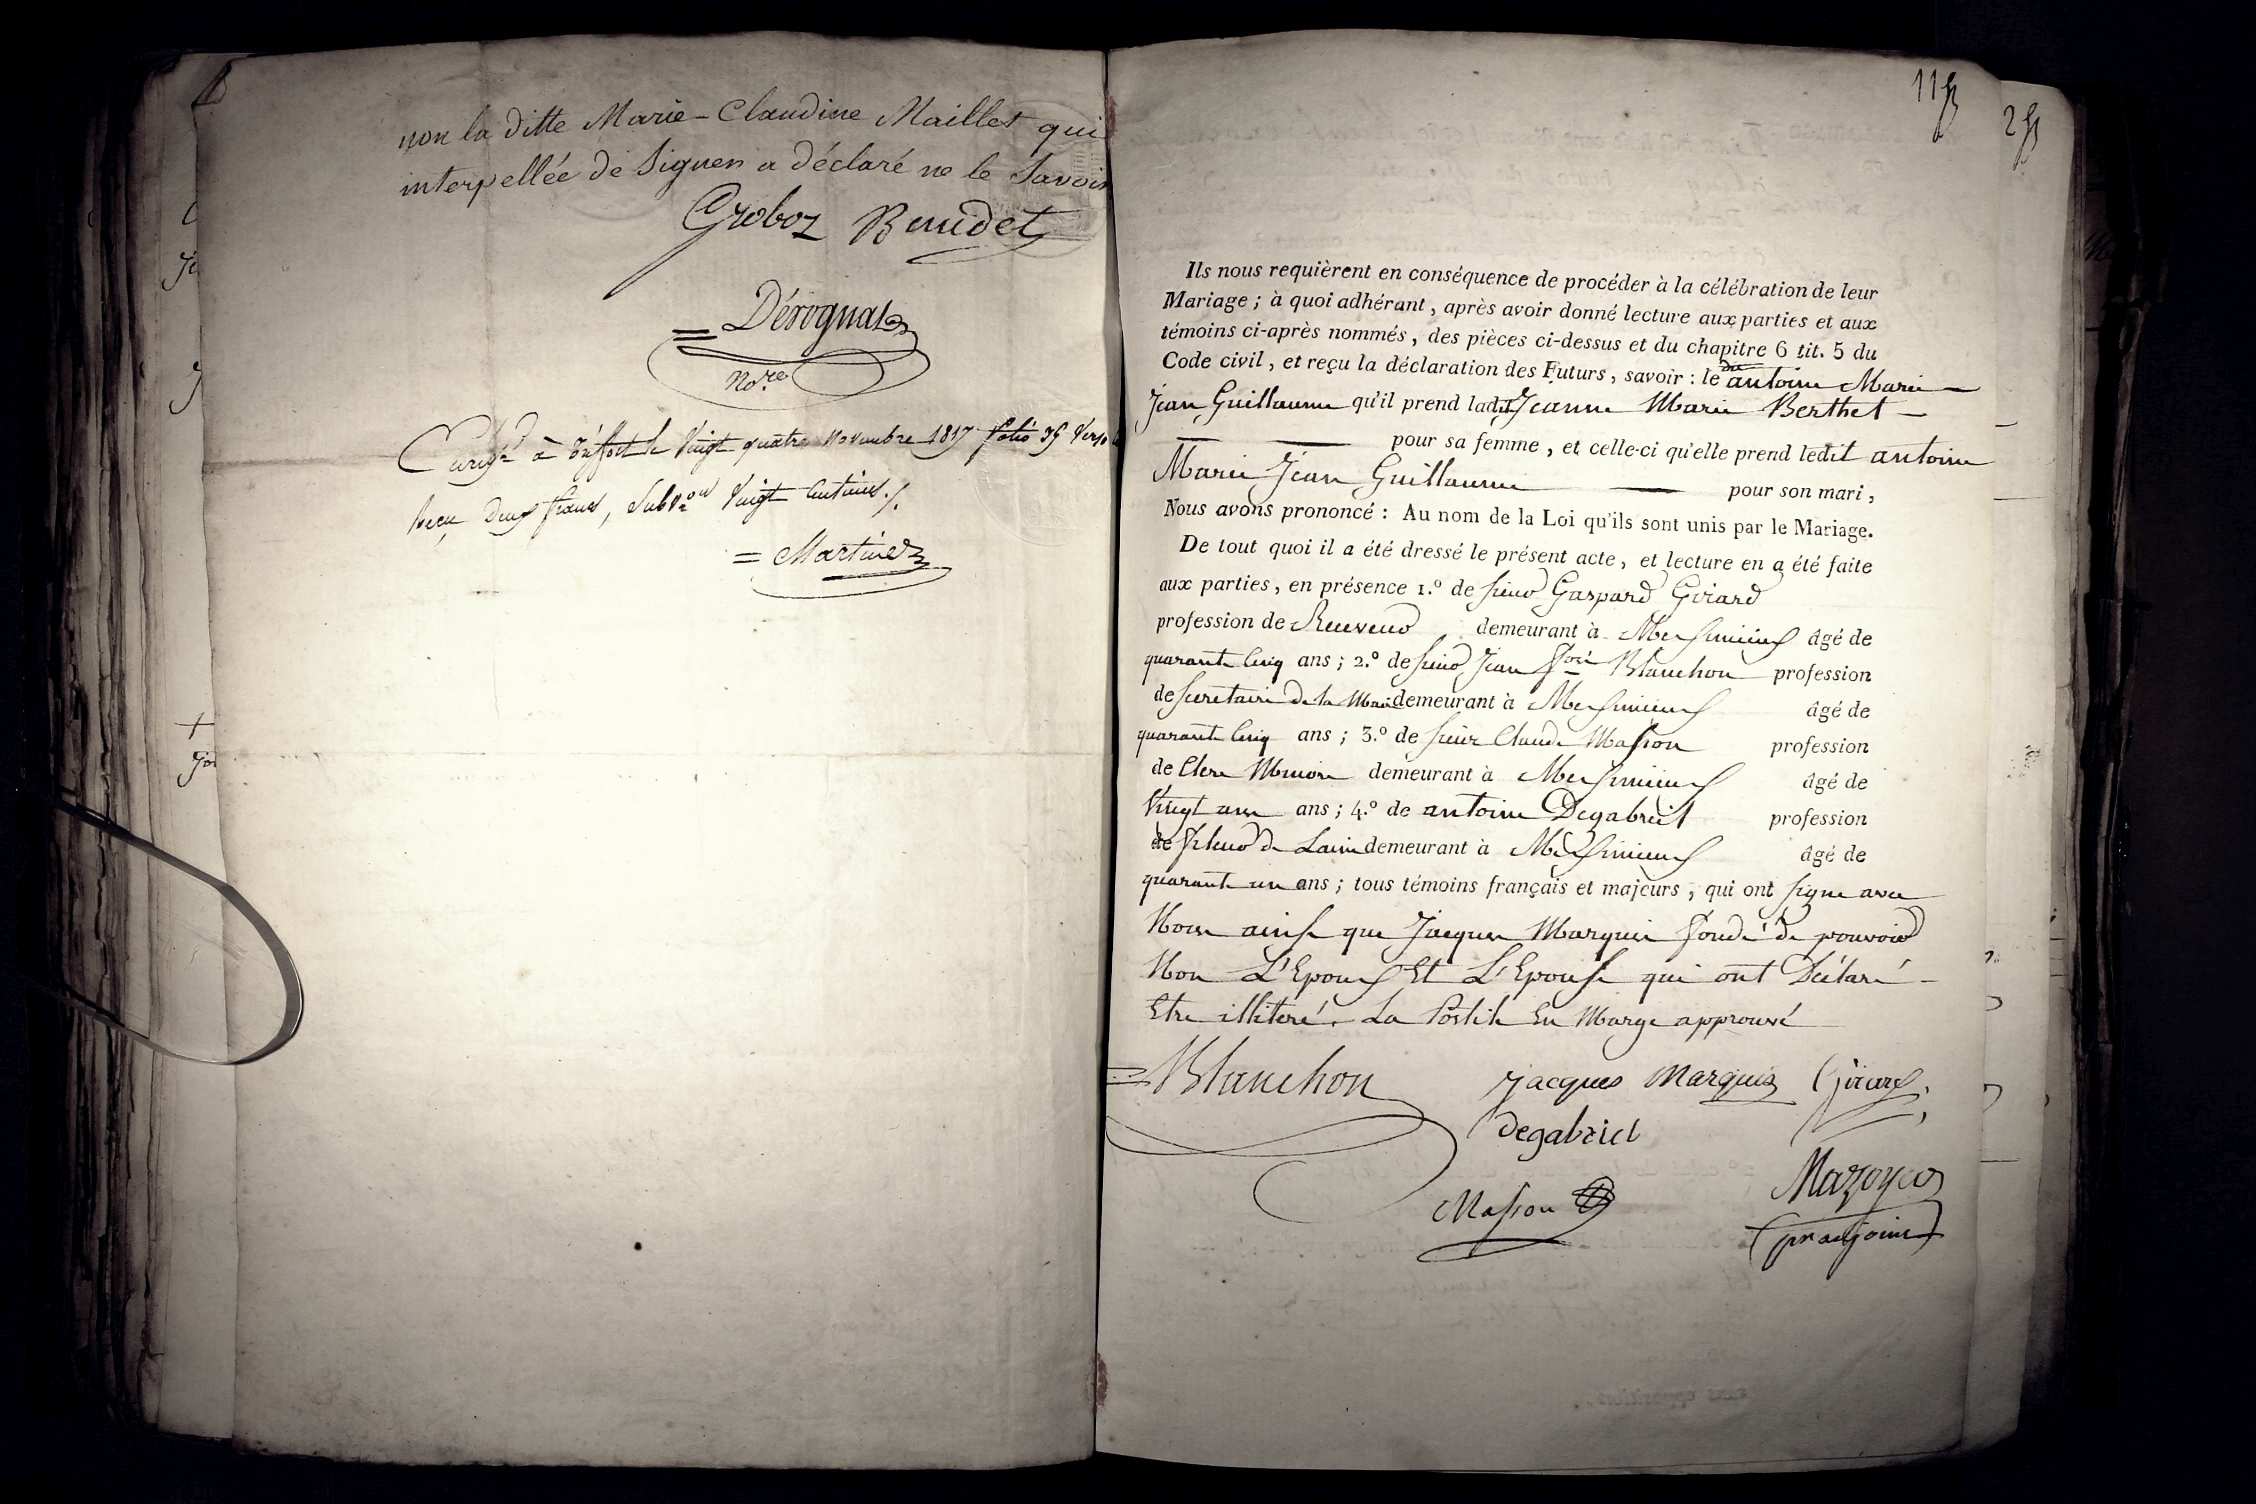 non la ditte Marie-Claudine Maillet qui
interpellée de Signer a déclaré ne le Savoir
Groboz Benidet
Dérognat
No.re
à le Vingt quatre novembre 1817 folio 35 Verso
Reçu Deux francs, Subv.on Vingt Centimes /.
Martine
11
2
Ils nous requièrent en conséquence de procéder à la célébration de leur
Mariage ; à quoi adhérant, après avoir donné lecture aux parties et aux
témoins ci-après nommés, des pièces ci-dessus et du chapitre 6 tit. 5 du
Code civil, et reçu la déclaration des Futurs, savoir : le dit antoine Marie
Jean Guillaume qu'il prend ladit Jeanne Marie Berthet
pour sa femme, et celle-ci qu'elle prend ledit antoine
Marie Jean Guillaume pour son mari,
Nous avons prononcé : Au nom de la Loi qu'ils sont unis par le Mariage.
De tout quoi il a été dressé le présent acte, et lecture en a été faite
aux parties, en présence 1.º de sieur Gaspard Girard
profession de Receveur demeurant à Meximieux âgé de
quarante Cinq ans ; 2.º de sieur Jean Blanchon profession
de Secretaire de la Mairie demeurant à Meximieux âgé de
quarante Cinq ans ; 3.º de sieur Claude Masson profession
de Clerc demeurant à Meximieux âgé de
Vingt ans ; 4.º de antoine Degabriel profession
de fileur de Laine demeurant à Meximieux âgé de
quarante un ans ; tous témoins français et majeurs, qui ont signé avec
Nous ainsi que Jacques Marquis fondé de pouvoir
Non L'Epoux Et L'Epouse qui ont Déclaré
Etre illiteré. La Postile En Marge approuvé
Blanchon Jacques Marquis Girard
Degabriel
Mazoyer
Masson